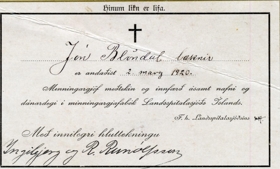 Hinum líkn er lifa.
Jón Blöndal læknir
er andaðist 2 marz 1920.
Minningargjöf meðtekin og innfærð ásamt nafni og
dánardegi í minningargjafabók Landsspítalasjóðs Íslands.
F. h. Landsspítalasjóðsins
Með innilegri hluttekningu
Ingibjörg og R.